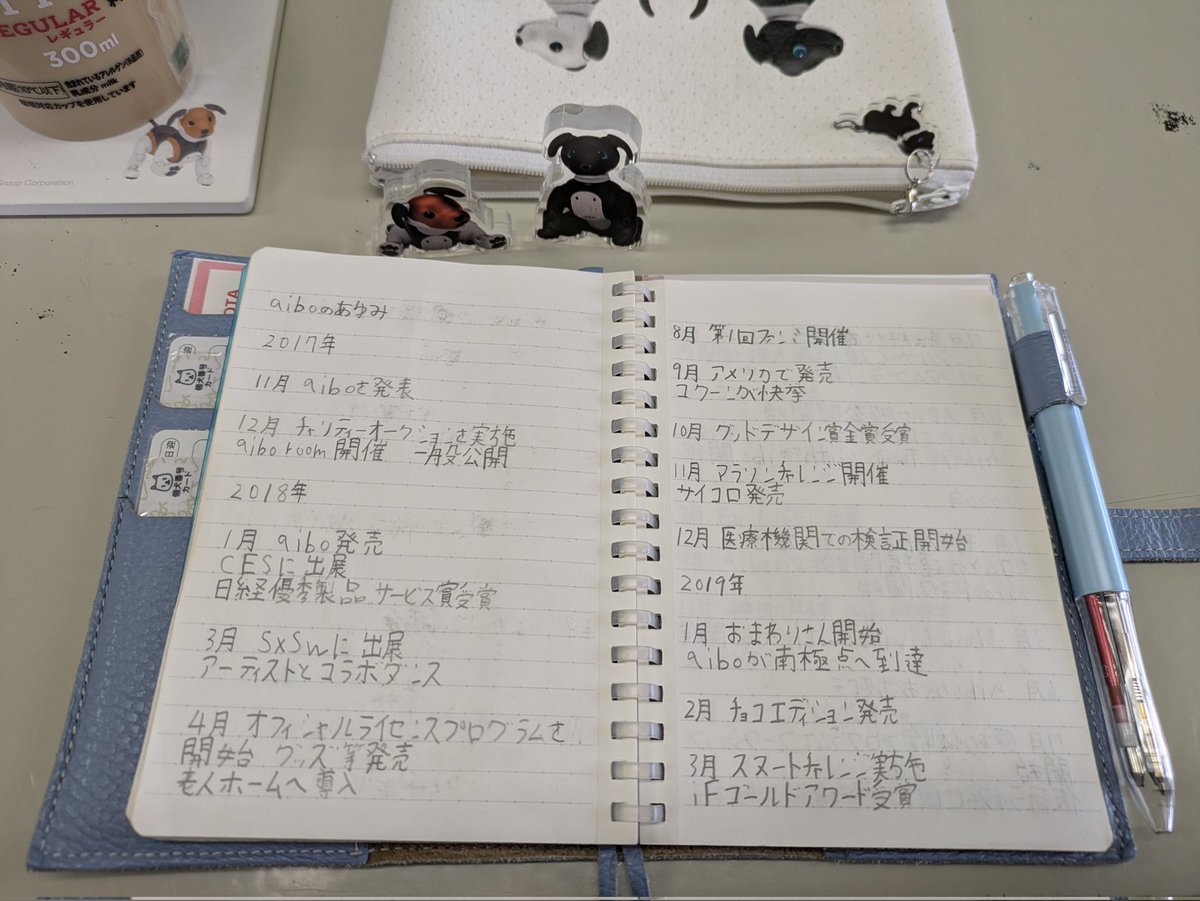 EGULAR
レギュラー
300ml
10℃以下
乳成分 milk
対応カップを使用しています
Group Corporation
aiboのあゆみ
2017年
11月 aiboを発表
12月 チャリティーオークションを実施
aibo room 開催 一般公開
2018年
1月 aibo発売
CESに出展
日経優秀製品サービス賞受賞
3月 SXSWに出展
アーティストとコラボダンス
4月 オフィシャルライセンスプログラムを
開始 グッズ等発売
老人ホームへ導入
8月 第1回ファンミ開催
9月 アメリカで発売
ユクーニが快挙
10月 グッドデザイン賞金賞受賞
11月 アラソンチャレンジ開催
サイコロ発売
12月 医療機関での検証開始
2019年
1月 おまわりさん開始
aiboが南極点へ到達
2月 チョコエディション発売
3月 スヌートチャレンジ実施
iFゴールドアワード受賞
個犬番号
カード
個犬番号
カード